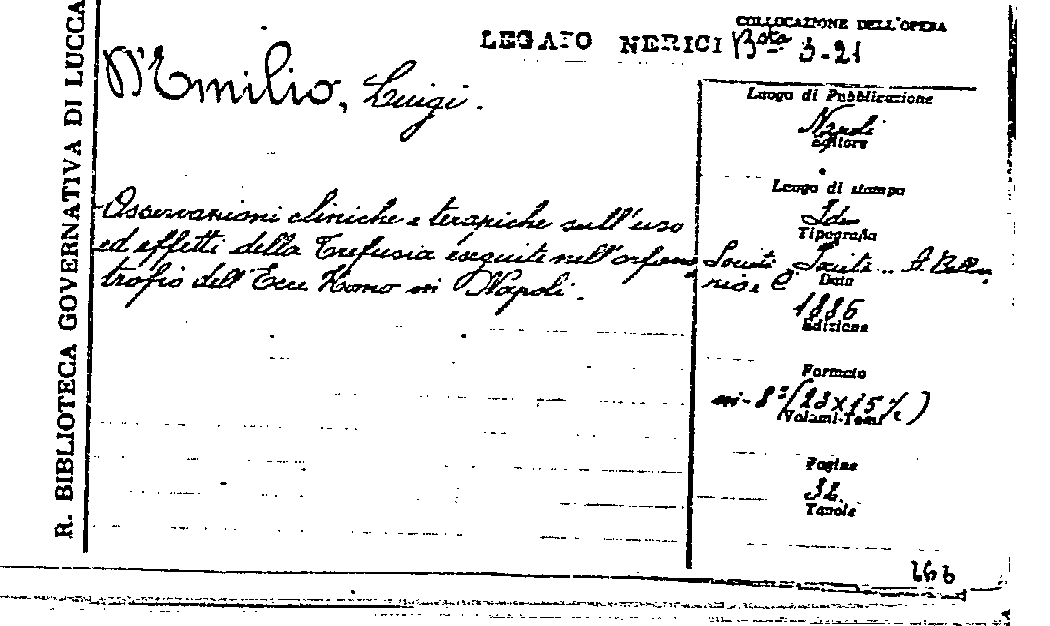 R. BIBLIOTECA GOVERNATIVA DI LUCCA
COLLOCAZIONE DELL'OPERA
LEGATO NERICI Bta 3-21
D'Emilio, Luigi.
Luogo di Pubblicazione
Napoli
Editore
Luogo di stampa
Id
Tipografia
Osservazioni cliniche e terapiche sull'uso
ed effetti della Trefusia eseguite nell'orfano
trofio dell'Ecce Homo in Napoli.
Società
Data
1886
Edizione
Formato
in-8° (23x15½)
Volumi-Tomi
Pagine
32.
Tavole